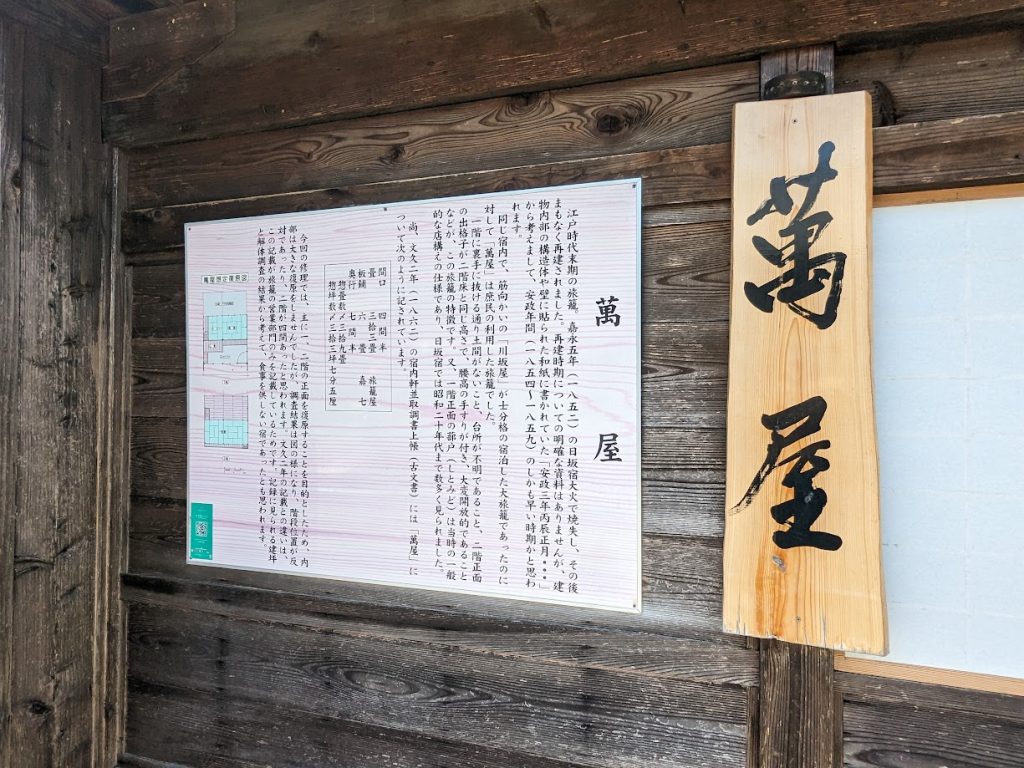 萬屋
萬屋
江戸時代末期の旅籠。嘉永五年（一八五二）の日坂宿大火で焼失し、その後
まもなく再建されました。再建時期についての明確な資料はありませんが、建
物内部の構造体や壁に貼られた和紙に書かれていた「安政三年丙辰正月・・・」
から考えまして、安政年間（一八五四～一八五九）のしかも早い時期かと思わ
れます。
同じ宿内で、筋向かいの「川坂屋」が士分格の宿泊した大旅籠であったのに
対して「萬屋」は庶民の利用した旅籠でした。
一階に裏手に抜ける通り土間がないこと、台所が不明であること、二階正面
の出格子が二階床と同じ高さで、腰高の手すりが付き、大変開放的であること
などが、この旅籠の特徴です。又、一階正面の蔀戸（しとみど）は当時の一般
的な店構えの仕様であり、日坂宿では昭和二十年代まで数多く見られました。
尚、文久二年（一八六二）の宿内軒並取調書上帳（古文書）には「萬屋」に
ついて次のように記されています。
間口　四間半　旅籠屋
畳　三拾三畳　嘉七
板鋪　六畳
奥行　七間半
惣畳数〆三拾九畳
惣坪数〆三拾三坪七分五厘
今回の修理では、主に一、二階の正面を復原することを目的としたため、内
部は大きな復原をしませんでしたが、調査結果は図の様になり、階段位置が反
対であったり、二階が四間あったと思われます。文久二年の記載との違いは、
この記載が旅籠の営業部門のみを記載しているためです。記録に見られる建坪
と解体調査の結果から考えて、食事を供しない宿であったとも思われます。
萬屋想定復原図